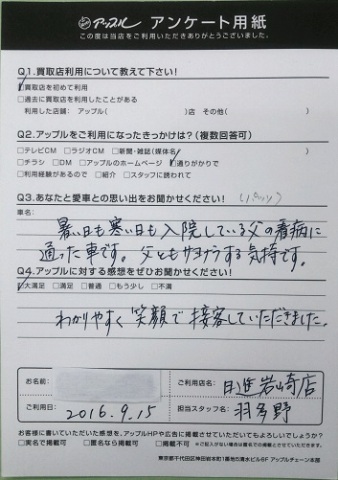 アップル アンケート用紙
この度は当店をご利用いただきありがとうございました。
Q1.買取店利用について教えて下さい!
□買取店を初めて利用
□過去に買取店を利用したことがある
利用した店舗:アップル( )店 その他( )
Q2.アップルをご利用になったきっかけは?(複数回答可)
□テレビCM □ラジオCM □新聞・雑誌(媒体名 )
□チラシ □DM □アップルのホームページ □通りがかりで
□利用経験があるので □紹介 □スタッフに誘われて
Q3.あなたと愛車との思い出をお聞かせください!
車名:
暑い日も寒い日も入院している父の看病に
通った車です。父ともサヨナラする気持です。
Q4.アップルに対する感想をぜひお聞かせください!
□大満足 □満足 □普通 □もう少し □不満
わかりやすく笑顔で接客していただきました。
お名前:
ご利用店名: 日進岩崎店
ご利用日: 2016.9.15
担当スタッフ名: 羽多野
お客様に書いていただいた感想を、アップルHPや広告に掲載させていただいてもよろしいでしょうか?
□実名で掲載可 □匿名なら掲載可 □掲載不可
東京都千代田区神田岩本町1番地 アップルチェーン本部